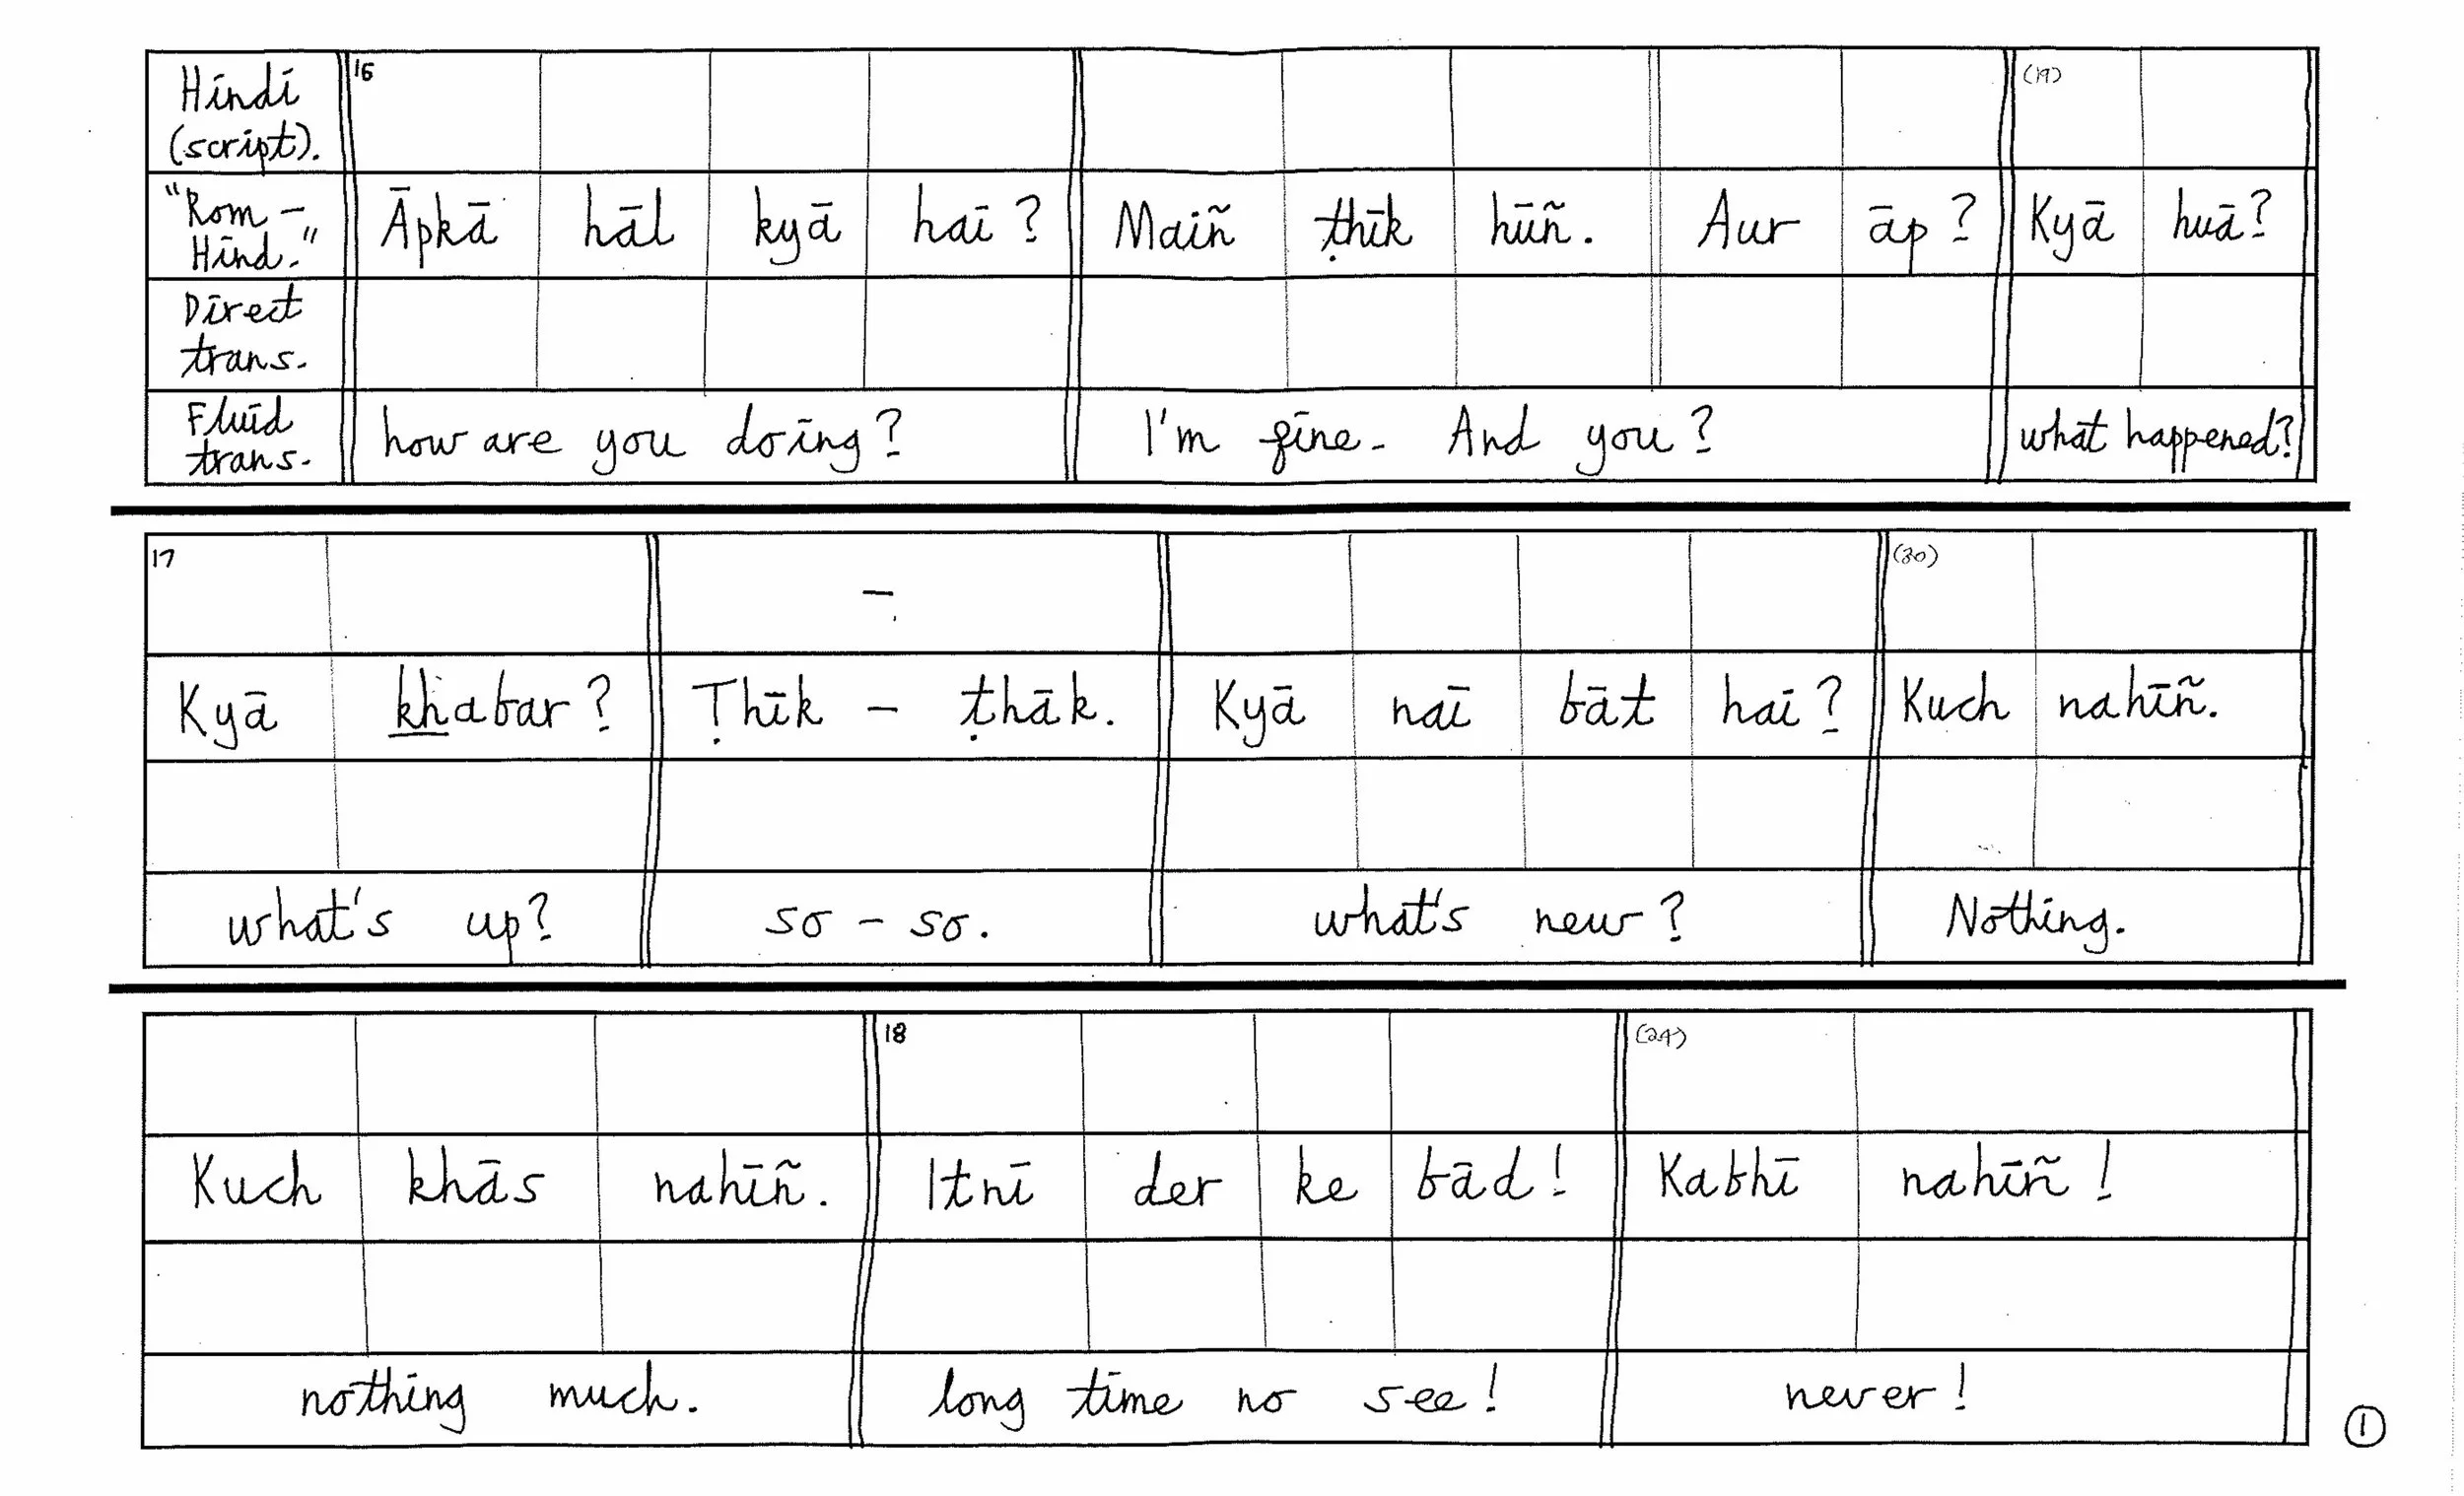 Hindi (script). 16 (19)
"Rom-Hind." Āpkā hāl kyā hai? Maiñ ṭhīk hūñ. Aur āp? Kyā huā?
Direct trans.
Fluid trans. how are you doing? I'm fine. And you? what happened?
17 - (30)
Kyā khabar? Ṭhīk - ṭhāk. Kyā naī bāt hai? Kuch nahīñ.
what's up? so-so. what's new? Nothing.
18 (24)
Kuch khās nahīñ. Itnī der ke bād! Kabhī nahīñ!
nothing much. long time no see! never!
1